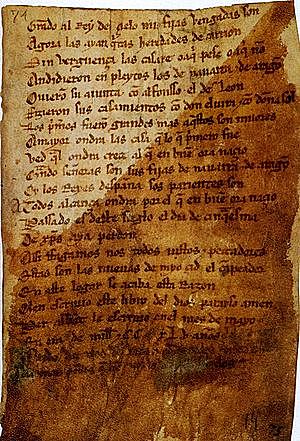 71
Grado al Rey del çielo mis fijas vengadas son
Agora las ayan quitas heredades de carrion
Sin verguença las casare o aqi pese o aqi nō
Andidieron en pleytos los de nauarra & de aragō
Ouierō su aiunta cō alfonsso el de leon
Fizieron sus casamientos cō don eluira & cō doña sol
Los pmeros fuerō grandes mas aqstos son miiores
A mayor ondra las casa q̄ lo q̄ pmero fue
Ved ql ondra creçe al q̄ en buē ora naçio
Qndo señoras son sus fijas de nauarra & de aragō
Oy los Reyes despaña sos parientes son
A todos alcança ondra por el q̄ en buē ora naçio
Passado es deste sieglo el dia de cinqesma
De xp̄s aya perdon
Assi ffagamos nos todos iustos & peccadores
Estas son las nueuas de myo çid el campeador
En este logar se acaba esta Razon
Qien escriuio este libro del dios parayso amen
Per abbat le escriuio enel mes de mayo
En era de mill & .CC XLV años